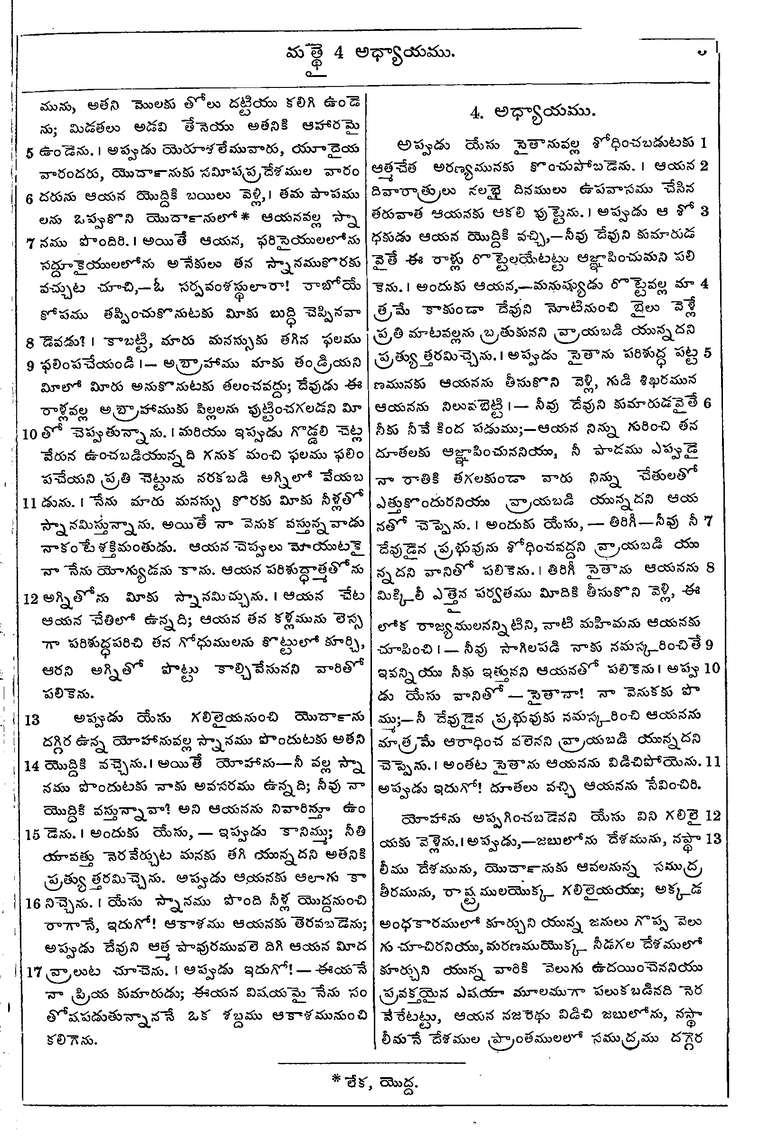 మత్తై 4 అధ్యాయము.
మును, అతని మొలకు తోలు దట్టియు కలిగి ఉండె
ను; మిడతలు అడవి తేనెయు అతనికి ఆహారమై
5 ఉండెను. । అప్పుడు యెరూశలేమువారు, యూదైయ
వారందరు, యొర్దానుకు సమీపప్రదేశముల వారం
6 దరును ఆయన యొద్దికి బయిలు వెళ్లి, । తమ పాపము
లను ఒప్పుకొని యొర్దానులో * ఆయనవల్ల స్నా
7 నము పొందిరి. । అయితే ఆయన, ఫరిసైయులలోను
సద్దూకైయులలోను అనేకులు తన స్నానముకొరకు
వచ్చుట చూచి,—ఓ సర్పవంశస్థులారా! రాబోయే
కోపము తప్పించుకొనుటకు మీకు బుద్ధి చెప్పినవా
8 డెవడు? । కాబట్టి, మారు మనస్సుకు తగిన ఫలము
9 ఫలింపచేయండి । — అబ్రాహాము మాకు తండ్రియని
మీలో మీరు అనుకొనుటకు తలంచవద్దు; దేవుడు ఈ
రాళ్లవల్ల అబ్రాహాముకు పిల్లలను పుట్టించగలడని మీ
10 తో చెప్పుతున్నాను. । మరియు ఇప్పుడు గొడ్డలి చెట్ల
వేరున ఉంచబడియున్నది గనుక మంచి ఫలము ఫలిం
పచేయని ప్రతి చెట్టును నరకబడి అగ్నిలో వేయబ
11 డును. । నేను మారు మనస్సు కొరకు మీకు నీళ్లతో
స్నానమిస్తున్నాను. అయితే నా వెనుక వస్తున్నవాడు
నాకంటే శక్తిమంతుడు. ఆయన చెప్పులు మోయుటకై
నా నేను యోగ్యుడను కాను. ఆయన పరిశుద్ధాత్మతోను
12 అగ్నితోను మీకు స్నానమిచ్చును. । ఆయన చేట
ఆయన చేతిలో ఉన్నది; ఆయన తన కళ్లమును లెస్స
గా పరిశుద్ధపరిచి తన గోధుములను కొట్టులో కూర్చి,
ఆరని అగ్నితో పొట్టు కాల్చివేసునని వారితో
పలికెను.
13 అప్పుడు యేసు గలిలైయనుంచి యొర్దాను
దగ్గిర ఉన్న యోహానువల్ల స్నానము పొందుటకు అతని
14 యొద్దికి వచ్చెను. । అయితే యోహాను—నీ వల్ల స్నా
నము పొందుటకు నాకు అవసరము ఉన్నది; నీవు నా
యొద్దికి వస్తున్నావా? అని ఆయనను నివారిస్తూ ఉం
15 డెను. । అందుకు యేసు, — ఇప్పుడు కానిమ్ము; నీతి
యావత్తు నెరవేర్చుట మనకు తగి యున్నదని అతనికి
ప్రత్యుత్తరమిచ్చెను. అప్పుడు ఆయనకు ఆలాగు కా
16 నిచ్చెను. । యేసు స్నానము పొంది నీళ్ల యొద్దనుంచి
రాగానే, ఇదుగో! ఆకాళము ఆయనకు తెరవబడెను;
అప్పుడు దేవుని ఆత్మ పావురమువలె దిగి ఆయన మీద
17 వ్రాలుట చూచెను. । అప్పుడు ఇదుగో! — ఈయనే
నా ప్రియ కుమారుడు; ఈయన విషయమై నేను సం
తోషపడుతున్నాననే ఒక శబ్దము ఆకాళమునుంచి
కలిగెను.
4. అధ్యాయము.
అప్పుడు యేసు సైతానువల్ల శోధించబడుటకు 1
ఆత్మచేత అరణ్యమునకు కొంచుపోబడెను. । ఆయన 2
దివారాత్రులు నలభై దినములు ఉపవాసము చేసిన
తరువాత ఆయనకు ఆకలి పుట్టెను. । అప్పుడు ఆ శో 3
ధకుడు ఆయన యొద్దికి వచ్చి,—నీవు దేవుని కుమారుడ
వైతే ఈ రాళ్లు రొట్టెలయేటట్టు ఆజ్ఞాపించుమని పలి
కెను. । అందుకు ఆయన,—మనుష్యుడు రొట్టెవల్ల మా 4
త్రమే కాకుండా దేవుని నోటినుంచి బైలు వెళ్లే
ప్రతి మాటవల్లను బ్రతుకునని వ్రాయబడి యున్నదని
ప్రత్యుత్తరమిచ్చెను. । అప్పుడు సైతాను పరిశుద్ధ పట్ట 5
ణమునకు ఆయనను తీసుకొని వెళ్లి, గుడి శిఖరమున
ఆయనను నిలువబెట్టి । — నీవు దేవుని కుమారుడవైతే 6
నీకు నీవే కింద పడుము;—ఆయన నిన్ను గురించి తన
దూతలకు ఆజ్ఞాపించుననియు, నీ పాదము ఎప్పుడై
నా రాతికి తగలకుండా వారు నిన్ను చేతులతో
ఎత్తుకొందురనియు వ్రాయబడి యున్నదని ఆయ
నతో చెప్పెను. । అందుకు యేసు, — తిరిగీ—నీవు నీ 7
దేవుడైన ప్రభువును శోధించవద్దని వ్రాయబడి యు
న్నదని వానితో పలికెను. । తిరిగీ సైతాను ఆయనను 8
మిక్కిలీ ఎత్తైన పర్వతము మీదికి తీసుకొని వెళ్లి, ఈ
లోక రాజ్యములనన్నిటిని, వాటి మహిమను ఆయనకు
చూపించి । — నీవు సాగిలపడి నాకు నమస్కరించితే 9
ఇవన్నియు నీకు ఇత్తునని ఆయనతో పలికెను। అప్పు 10
డు యేసు వానితో — సైతానా! నా వెనుకకు పొ
మ్ము;—నీ దేవుడైన ప్రభువుకు నమస్కరించి ఆయనను
మాత్రమే ఆరాధించ వలెనని వ్రాయబడి యున్నదని
చెప్పెను. । అంతట సైతాను ఆయనను విడిచిపోయెను. 11
అప్పుడు ఇదుగో! దూతలు వచ్చి ఆయనను సేవించిరి.
యోహాను అప్పగించబడెనని యేసు విని గలిలై 12
యకు వెళ్లెను. । అప్పుడు,—జబులోను దేశమును, నఫ్తా 13
లీము దేశమును, యొర్దానుకు ఆవలనున్న సముద్ర
తీరమును, రాష్ట్రములయొక్క గలిలైయయు; అక్కడ
అంధకారములో కూర్చుని యున్న జనులు గొప్ప వెలు
గు చూచిరనియు, మరణముయొక్క నీడగల దేశములో
కూర్చుని యున్న వారికి వెలుగు ఉదయించెననియు
ప్రవక్తయైన ఎషయా మూలముగా పలుకబడినది నెర
వేరేటట్టు, ఆయన నజరేథు విడిచి జబులోను, నఫ్తా
లీమనే దేశముల ప్రాంతములలో సముద్రము దగ్గిర
* లేక, యొద్ద.